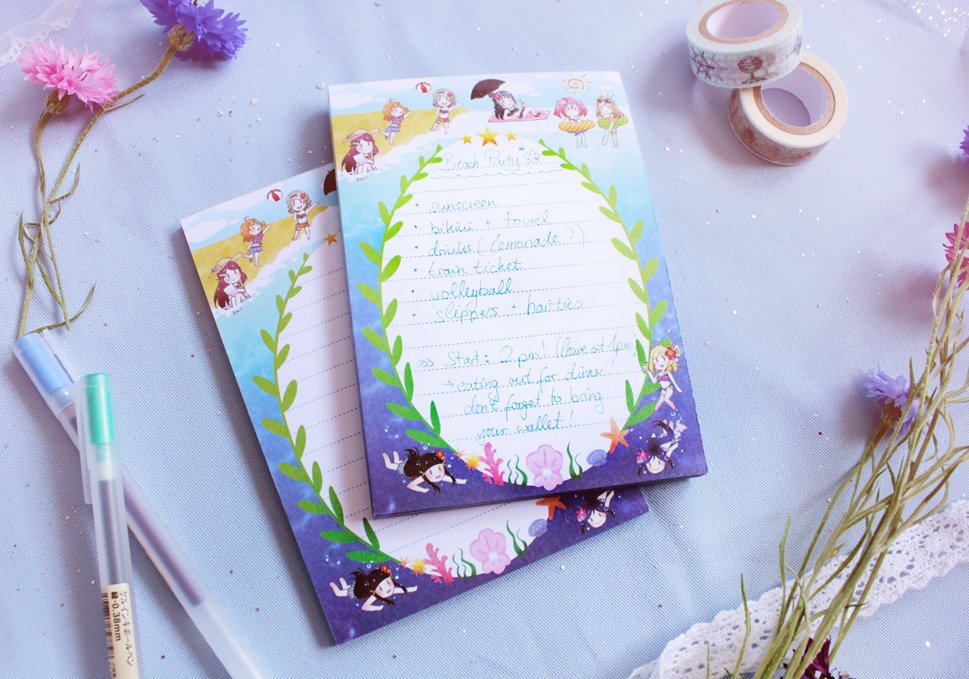 Beach Party
• sunscreen
• bikini + towel
• drinks (lemonade?)
• train ticket
• volleyball
• slippers + hairties
>>> Start: 2 pm! (leave at 1pm)
→ eating out for dinner
don't forget to bring
your wallet!
ゲルインキボールペン
0.38mm